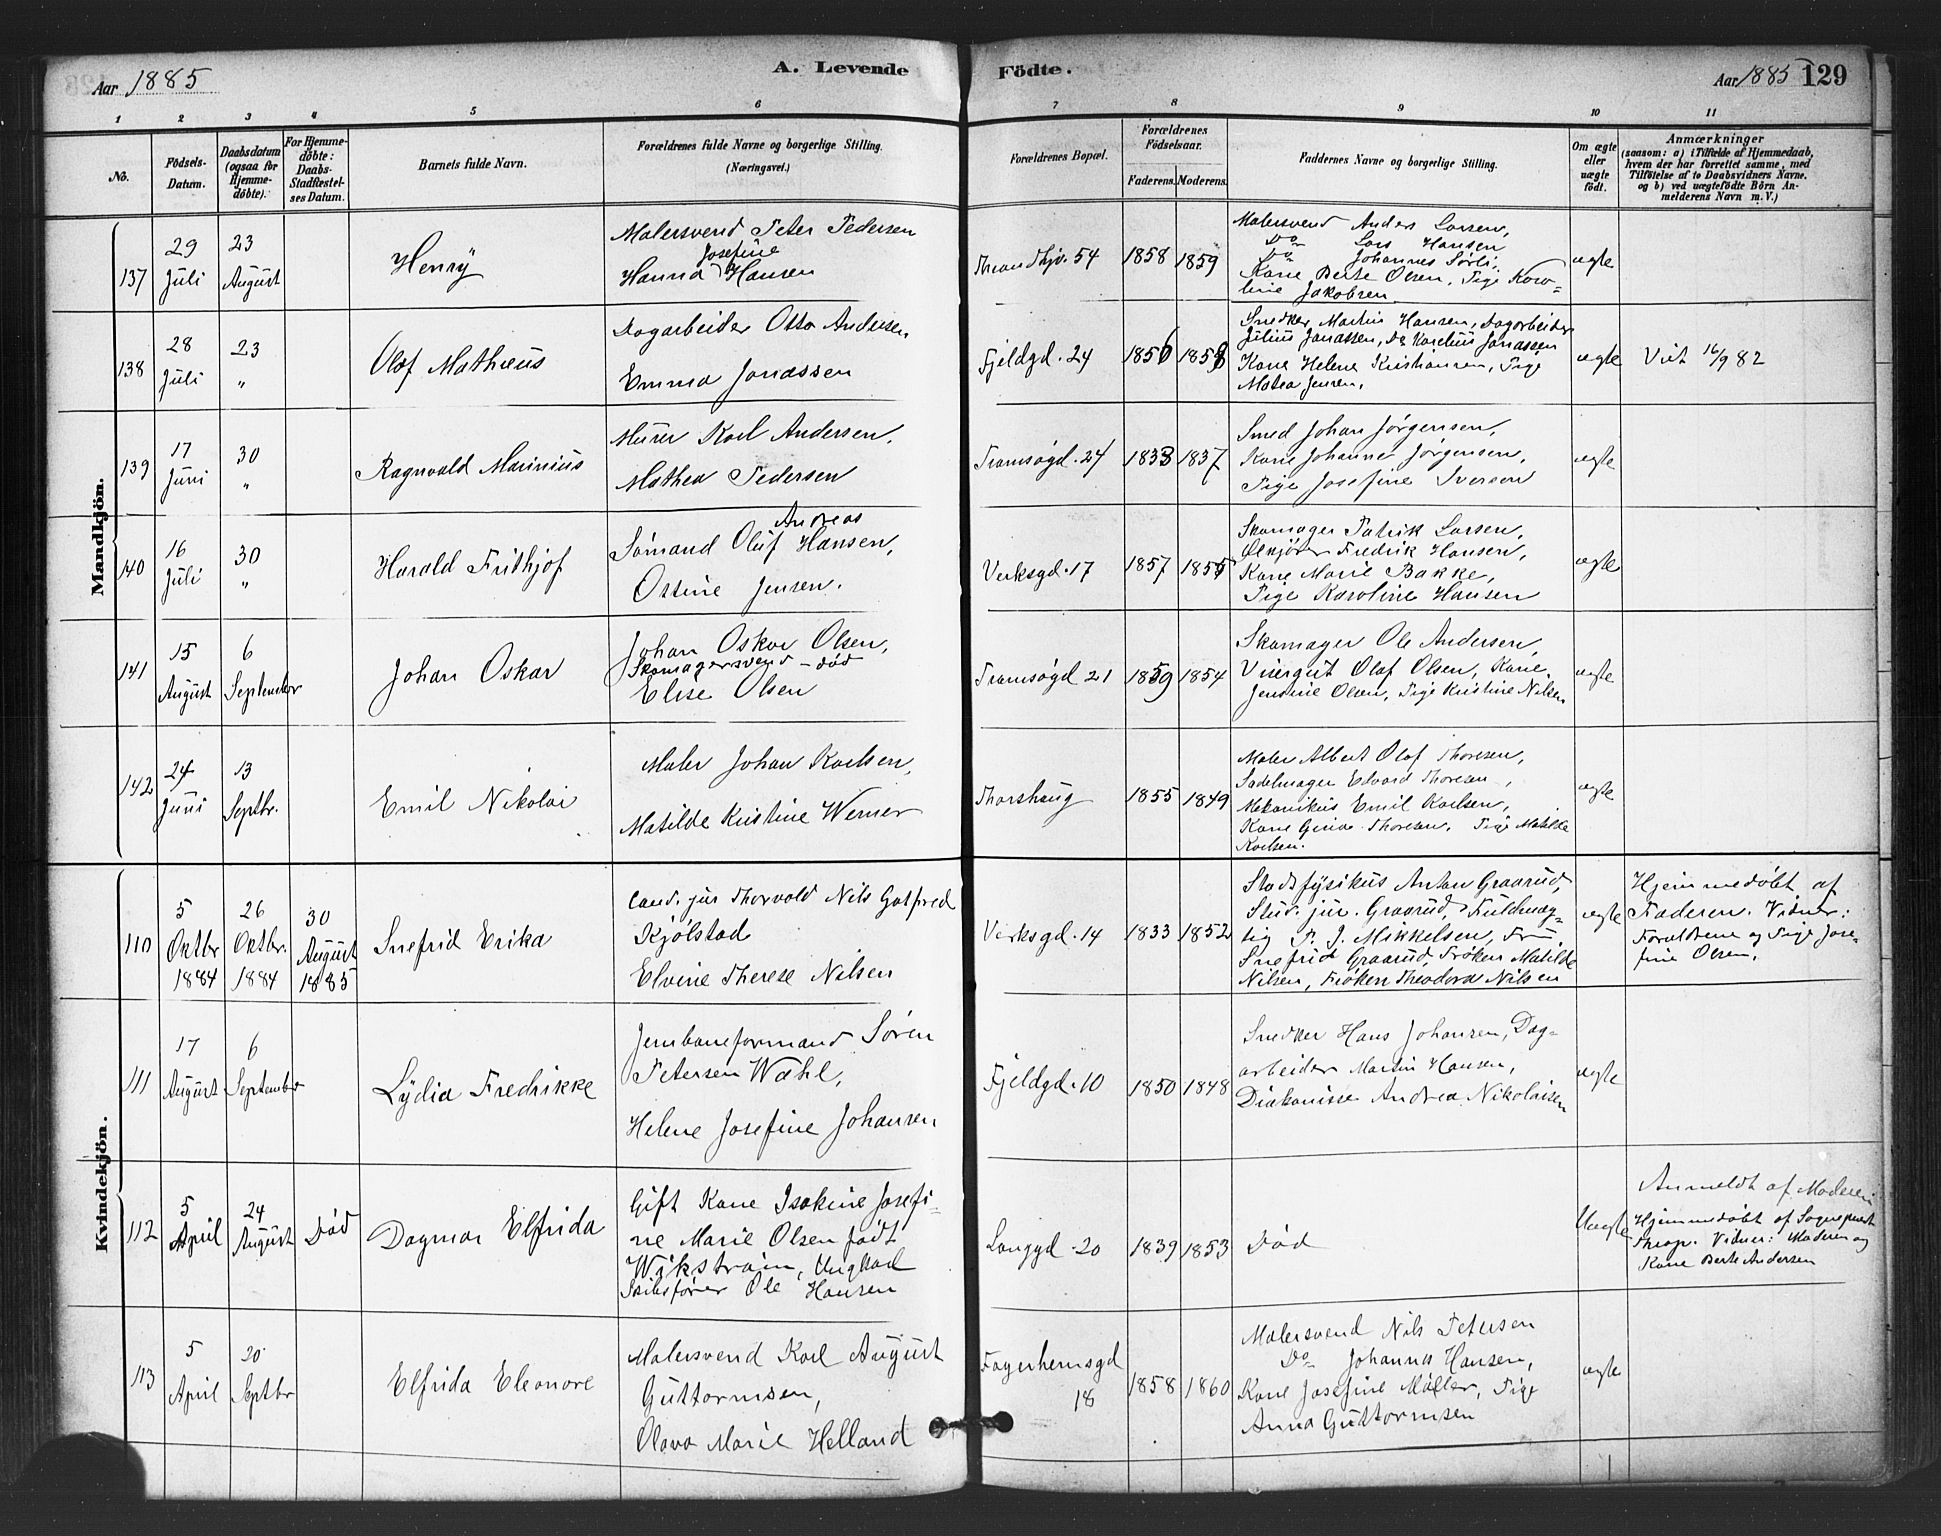 Aar 1885
A. Levende
Födte.
Aar 1885 129
1 2 3 4 5 6 7 8 9 10 11
No.
Födsels-Datum.
Daabsdatum (ogsaa for Hjemmedöbte).
For Hjemmedöbte: Daabs-Stadfæstelses Datum.
Barnets fulde Navn.
Forældrenes fulde Navne og borgerlige Stilling. (Næringsvei.)
Forældrenes Bopæl.
Forældrenes Födselsaar.
Faderens. Moderens.
Faddernes Navne og borgerlige Stilling.
Om ægte eller uægte födt.
Anmærkninger
(saasom: a) i Tilfælde af Hjemmedaab, hvem der har forrettet samme, med Tilföielse af to Daabsvidners Navne, og b) ved uægtefödte Börn Anmelderens Navn m. V.)
Mandkjön.
137
29 Juli
23 August
Henry
Malersvend Peter Pedersen
Josefine
Hanna Hansen
Throndhjv. 54
1858 1859
Malersvend Anders Larsen,
Do Lars Hansen
Do Johannes Sørli,
Kone Berte Olsen, Pige Karo-
line Jakobsen
ægte
138
28 Juli
23 "
Olaf Mathæus
Dagarbeider Otto Andersen
Emma Jonassen
Fjeldgd. 24
1856 1858
Snedker Martin Hansen, Dagarbeider
Julius Jonassen, Do Karelius Jonassen
Kone Helene Kristiansen, Pige
Matea Jensen.
ægte
Viet 16/9 82
139
17 Juni
30 "
Ragnvald Marinius
Murer Karl Andersen,
Mathea Pedersen
Tromsøgd. 24
1833 1837
Smed Johan Jørgensen,
Kone Johanne Jørgensen,
Pige Josefine Iversen
ægte
140
16 Juli
30 "
Harald Fridthjof
Andreas
Sømand Oluf Hansen,
Ostine Jensen.
Verksgd. 17
1857 1855
Skomager Patrik Larsen,
Ølkjører Fredrik Hansen,
Kone Marie Bakke,
Pige Karoline Hansen
ægte
141
15 August
6 September
Johan Oskar
Johan Oskar Olsen,
Skomagersvend - død
Elise Olsen
Tromsøgd 21
1859 1854
Skomager Ole Andersen,
Visergut Olaf Olsen, Kone
Jensine Olsen, Pige Kristine Nilsen
ægte
142
24 Juni
13 Septbr.
Emil Nikolai
Maler Johan Karlsen,
Matilde Kristine Werner
Thorshaug
1855 1849
Maler Albert Olaf Thoresen,
Sadelmager Edvard Thoresen,
Mekanikus Emil Karlsen,
Kone Gina Thoresen, Pige Matilde
Karlsen.
ægte
Kvindekjön.
110
5 Oktbr 1884
26 Oktbr. 1884
30 August 1885
Snefrid Erika
Cand. jur Thorvald Nils Gotfred
Kjølstad
Elvine Therese Nilsen
Verksgd. 14
1833 1852
Stadsfysikus Anton Graarud,
Stud. jur. Graarud, Fuldmæg-
tig P. J. Mikkelsen, Fru
Snefrid Graarud, Frøken Matilde
Nilsen, Frøken Theodora Nilsen
ægte
Hjemmedøbt af
Faderen. Vidner:
Forældrene og Pige Jose-
fine Olsen.
111
17 August
6 September
Lydia Fredrikke
Jernbaneformand Søren
Petersen Wahl,
Helene Josefine Johansen
Fjeldgd. 10
1850 1848
Snedker Hans Johansen, Dag-
arbeider Martin Hansen,
Diakonisse Andrea Nikolaisen
ægte
112
5 April
24 August
Død
Dagmar Elfrida
Gift Kone Isakine Josefi-
ne Marie Olsen født
Wikstrøm, Ungkarl
Ole Hansen
Langgd. 20
1839 1853
Død
Uægte
Anmeldt af Moderen
Hjemmedøbt af Sognepræst
Vidner: Moderen og
Kone Berte Andersen
113
5 April
20 Septbr
Elfrida Eleonore
Malersvend Karl August
Guttormsen,
Olava Marie Helland
Fagerheimsgd 18
1858 1860
Malersvend Nils Petersen
Do Johannes Hansen,
Kone Josefine Møller, Pige
Anna Guttormsen
ægte